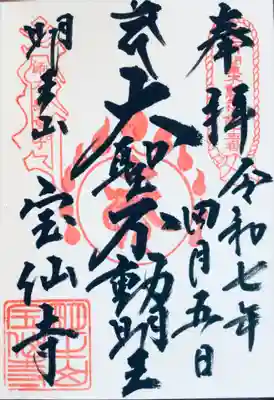 奉拝
令和七年
四月五日
大聖不動明王
明王山
宝仙寺